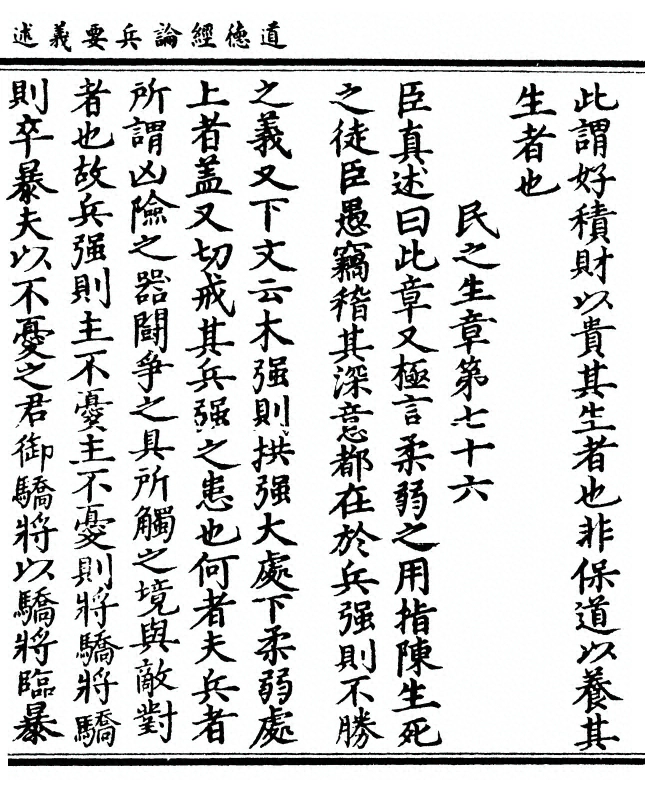 道德經論兵要義述
此謂好積財以貴其生者也非保道以養其
生者也
民之生章第七十六
臣真述曰此章又極言柔弱之用指陳生死
之徒臣愚竊稽其深意都在於兵强則不勝
之義又下文云木强則拱强大處下柔弱處
上者蓋又切戒其兵强之患也何者夫兵者
所謂凶險之器鬪争之具所觸之境與敵對
者也故兵强則主不憂主不憂則將驕將驕
則卒暴夫以不憂之君御驕將以驕將臨暴